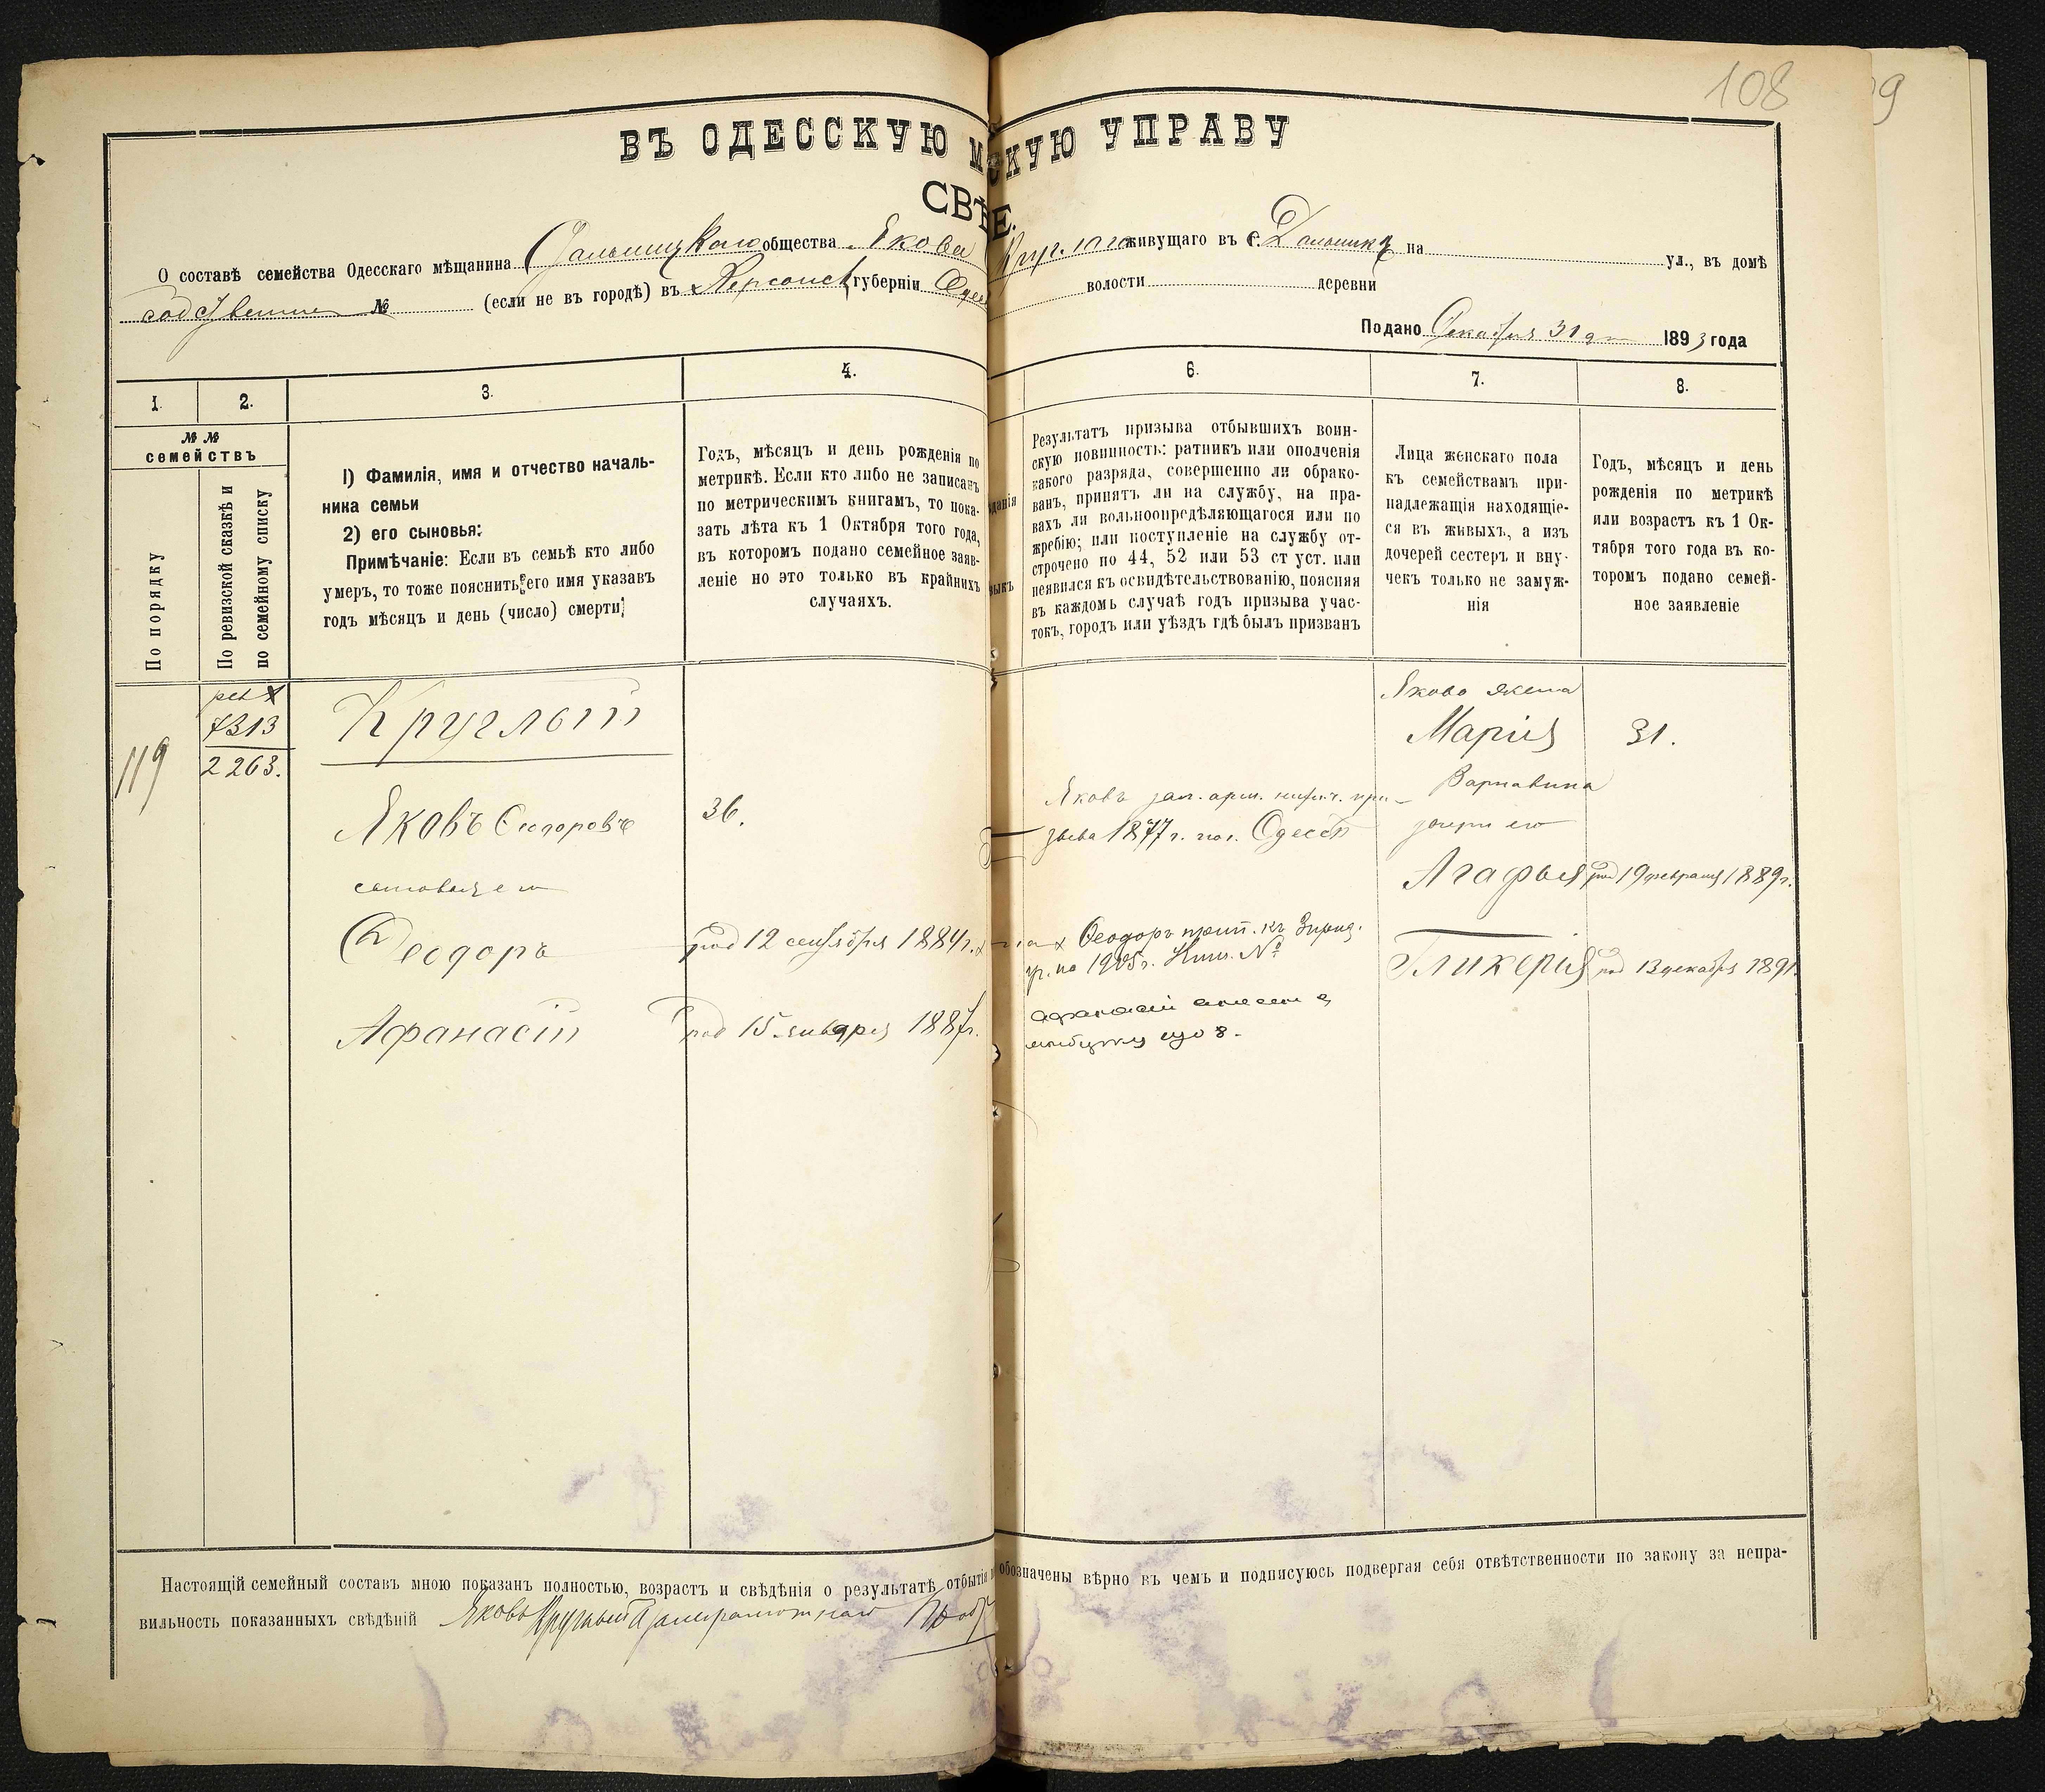 108
09
ВЪ ОДЕССКУЮ М СКУЮ УПРАВУ
СВѢ Е.
О составѣ семейства Одесскаго мѣщанина Дальницкаго общества Якова Круглаго живущаго въ с. Дальникѣ на ул., въ домѣ
собственном № (если не въ городѣ) въ Херсонск губерніи Одес волости деревни
Подано Декабря 31 дн 1893 года
1. 2. 3. 4. 6. 7. 8.
№ №
семействъ
По порядку
По ревизской сказкѣ и
по семейному списку
1) Фамилія, имя и отчество началь-
ника семьи
2) его сыновья:
Примѣчаніе: Если въ семьѣ кто либо
умеръ, то тоже пояснить, его имя указавъ
годъ мѣсяцъ и день (число) смерти;
Годъ, мѣсяцъ и день рожденія по
метрикѣ. Если кто либо не записанъ
по метрическимъ книгамъ, то пока-
зать лѣта къ 1 Октября того года,
въ которомъ подано семейное заяв-
леніе но это только въ крайнихъ
случаяхъ.
Результатъ призыва отбывшихъ воин-
скую повинность: ратникъ или ополченія
какого разряда, совершенно ли обрако-
ванъ, принятъ ли на службу, на пра-
вахъ ли вольноопредѣляющагося или по
жребію; или поступленіе на службу от-
строчено по 44, 52 или 53 ст уст. или
неявился къ освидѣтельствованію, поясняя
въ каждомъ случаѣ годъ призыва учас-
токъ, городъ или уѣздъ гдѣ былъ призванъ
Лица женскаго пола
къ семействамъ при-
надлежащія находящіе-
ся въ живыхъ, а изъ
дочерей сестеръ и вну-
чекъ только не замуж-
нія
Годъ, мѣсяцъ и день
рожденія по метрикѣ
или возрастъ къ 1 Ок-
тября того года въ ко-
торомъ подано семей-
ное заявленіе
119
рев X
7313
2263.
Круглый
Яковъ Сидоровъ
36.
сыновья его
Феодоръ
род 12 сентября 1884 г.
Афанасій
род 15 января 1887 г.
Яковъ зап. арм. нижн. при-
зыва 1877 г. по г. Одессѣ
Феодоръ прип. къ
уч. на 1905 г. №
Афанасій
Якова жена
Марія
31.
Варнавина
дочери его
Агафья
род 19 февраля 1889 г.
Гликерія
род 13 декабря 1891
Настоящій семейный составъ мною показанъ полностью, возрастъ и свѣдѣнія о результатѣ отбытія обозначены вѣрно въ чемъ и подписуюсь подвергая себя отвѣтственности по закону за непра-
вильность показанныхъ свѣдѣній Яковъ Круглый